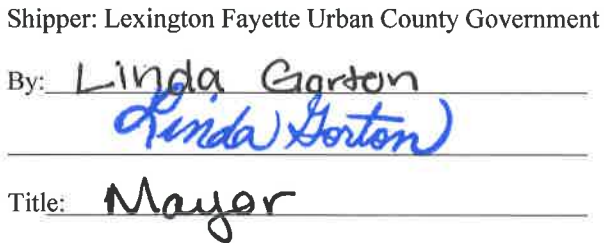 Shipper: Lexington Fayette Urban County Government
By: Linda Gorton
Linda Gorton
Title: Mayor